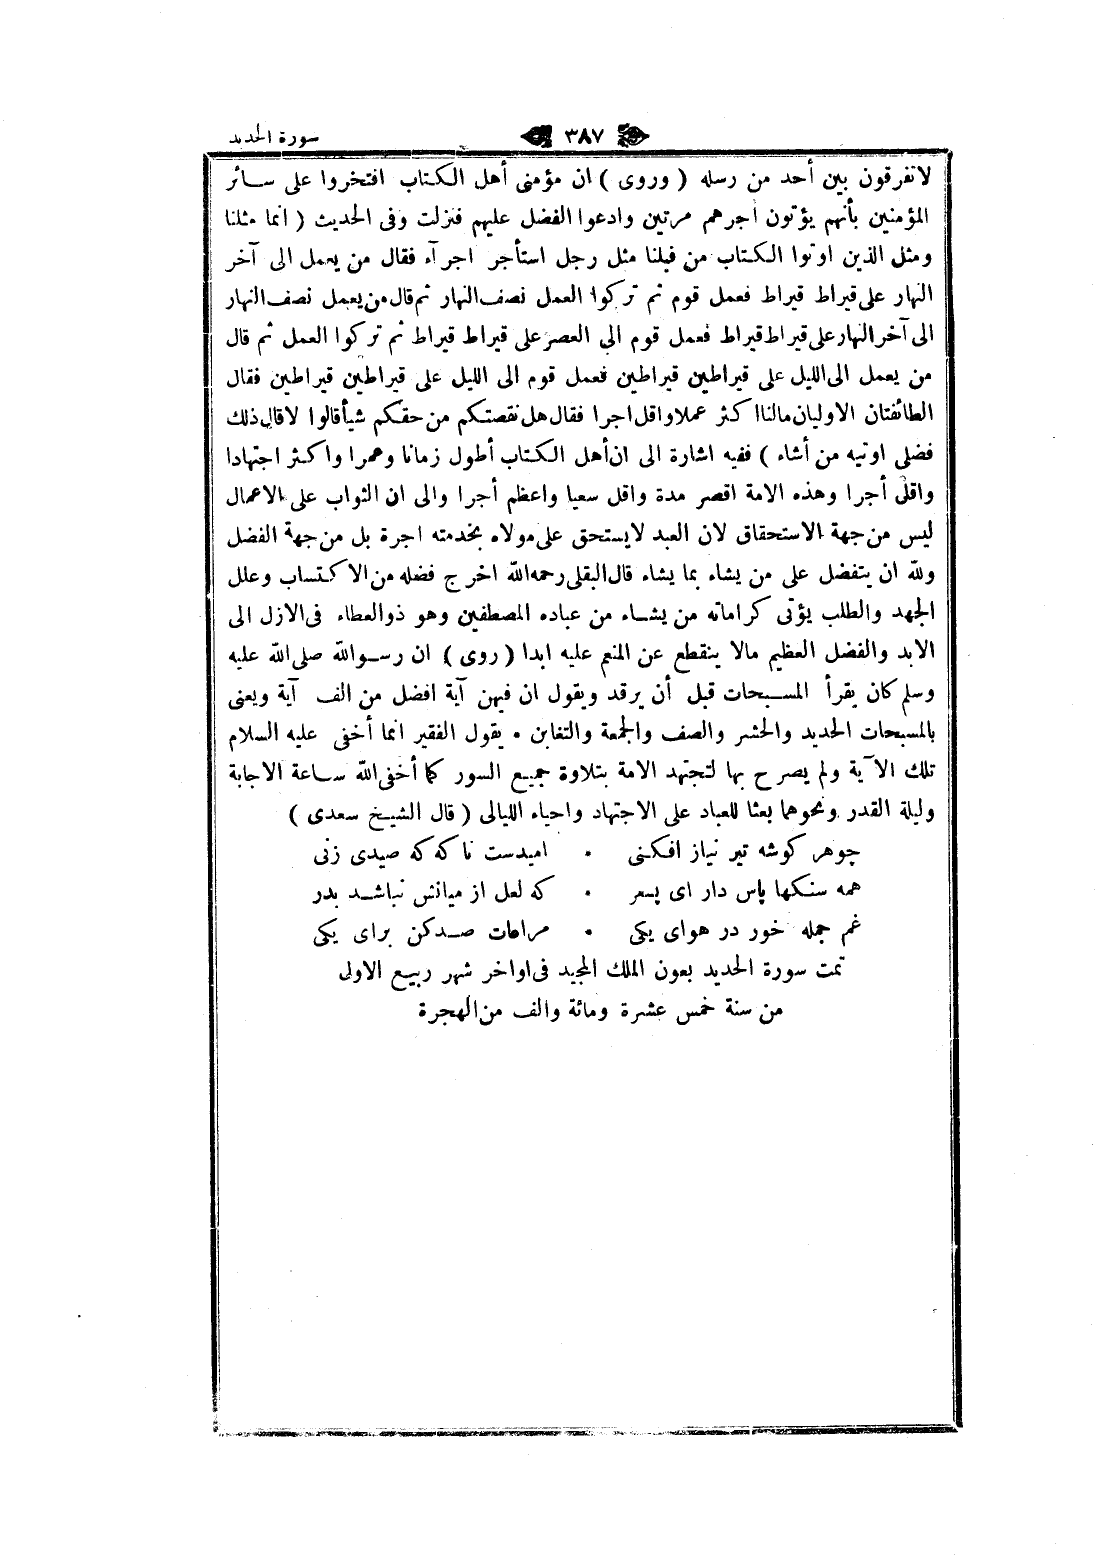 سورة الحديد ٣٨٧
لاتفرقون بين أحد من رسله ( وروى ) ان مؤمنى أهل الكتاب افتخروا على سائر
المؤمنين بأنهم يؤتون أجرهم مرتين وادعوا الفضل عليهم فنزلت وفى الحديث ( انما مثلنا
ومثل الذين اوتوا الكتاب من قبلنا مثل رجل استأجر اجرآء فقال من يعمل الى آخر
النهار على قيراط قيراط فعمل قوم ثم تركوا العمل نصف النهار ثم قال من يعمل نصف النهار
الى آخر النهار على قيراط قيراط فعمل قوم الى العصر على قيراط قيراط ثم تركوا العمل ثم قال
من يعمل الى الليل على قيراطين قيراطين فعمل قوم الى الليل على قيراطين قيراطين فقال
الطائفتان الاوليان مالنا اكثر عملا واقل اجرا فقال هل نقصتكم من حقكم شيأ قالوا لا قال ذلك
فضلى اوتيه من أشاء ) ففيه اشارة الى ان أهل الكتاب أطول زمانا وعمرا واكثر اجتهادا
واقل أجرا وهذه الامة اقصر مدة واقل سعيا واعظم أجرا والى ان الثواب على الاعمال
ليس من جهة الاستحقاق لان العبد لايستحق على مولاه بخدمته اجرة بل من جهة الفضل
ولله ان يتفضل على من يشاء بما يشاء قال البقلى رحمه الله اخرج فضله من الاكتساب وعلل
الجهد والطلب يؤتى كراماته من يشاء من عباده المصطفين وهو ذو العطاء فى الازل الى
الابد والفضل العظيم مالا ينقطع عن المنعم عليه ابدا ( روى ) ان رسوالله صلى الله عليه
وسلم كان يقرأ المسبحات قبل أن يرقد ويقول ان فيهن آية افضل من الف آية ويعنى
بالمسبحات الحديد والحشر والصف والجمعة والتغابن • يقول الفقير انما أخفى عليه السلام
تلك الآية ولم يصرح بها لتجتهد الامة بتلاوة جميع السور كما أخفى الله ساعة الاجابة
وليلة القدر ونحوهما بعثا للعباد على الاجتهاد واحياء الليالى ( قال الشيخ سعدى )
چوهر كوشه تير نياز افكنى • اميدست ناكه كه صيدى زنى
همه سنكها پاس دار اى پسر • كه لعل از ميانش نباشد بدر
غم جمله خور در هواى يكى • مراعات صدكن براى يكى
تمت سورة الحديد بعون الملك المجيد فى اواخر شهر ربيع الاولى
من سنة خمس عشرة ومائة والف من الهجرة